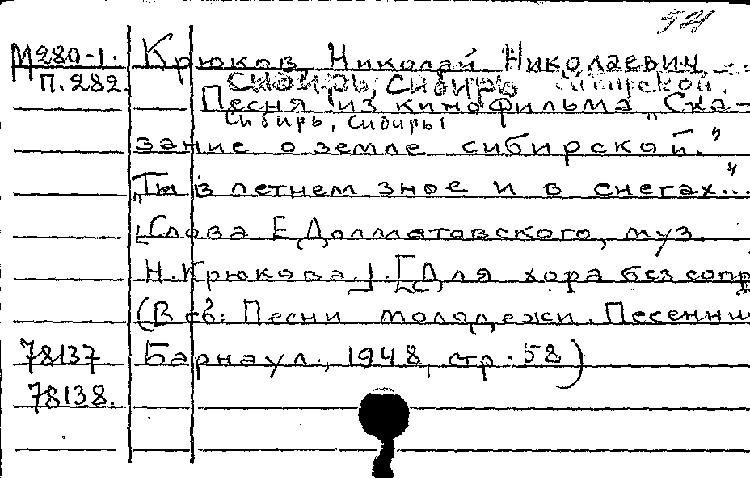 54
М280-1. Крюков, Николай Николаевич.
п.282. Сибирь, Сибирь сибирской.
Песня из кинофильма "Ска-
Сибирь, Сибирь!
зание о земле сибирской."
"Ты в летнем зное и в снегах..."
[Слова Е.Долматовского, муз.
Н.Крюкова.]. [Для хора без сопр
(В сб. Песни молодежи. Песенни
78137 Барнаул., 1948, стр. 58)
78138.